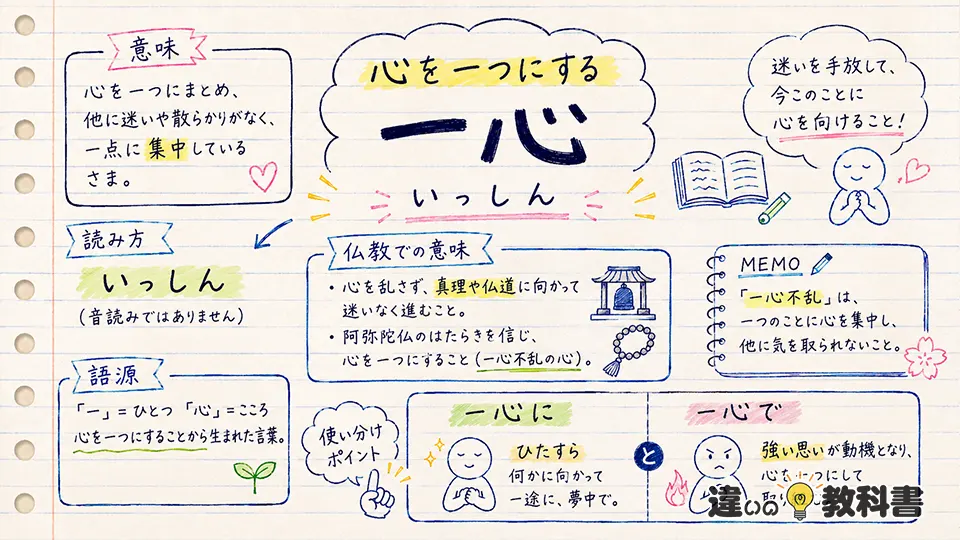 心を一つにする
一心
いっしん
意味
心を一つにまとめ、
他に迷いや散らかりがなく、
一点に集中している
さま。
迷いを手放して、
今このことに
心を向けること!
読み方
いっしん
(音読みではありません)
仏教での意味
・心を乱さず、真理や仏道に向かって
迷いなく進むこと。
・阿弥陀仏のはたらきを信じ、
心を一つにすること(一心不乱の心)。
MEMO
「一心不乱」は、
一つのことに心を集中し、
他に気を取られないこと。
語源
「一」=ひとつ 「心」=こころ
心を一つにすることから生まれた言葉。
使い分け
ポイント
一心に
ひたすら
何かに向かって
一途に、夢中で。
と
一心で
強い思いが動機となり、
心を一つにして
取り
違いの教科書